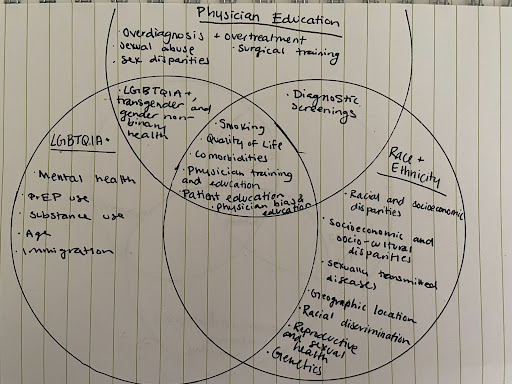 Physician Education
· Overdiagnosis + overtreatment
· sexual abuse
· surgical training
· sex disparities
· LGBTQIA+,
transgender and
gender non-
binary
health
· Diagnostic
screenings
LGBTQIA+
· Mental health
· PrEP use
· Substance use
· Age
· Immigration
· Smoking
· Quality of Life
· Comorbidities
· Physician training
and education
· Patient education
· Physician bias &
education
Race +
Ethnicity
· Racial and socioeconomic
disparities
· Socioeconomic and
socio-cultural
disparities
· sexually transmitted
diseases
· Geographic location
· Racial discrimination
· Reproductive
and sexual
health
· Genetics